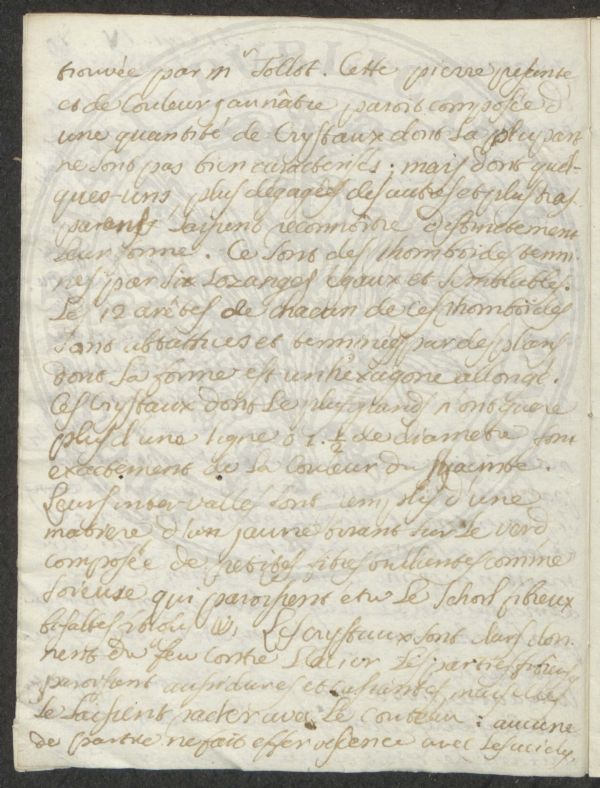 trouvée par mr Tollot. Cette pierre pesante
et de couleur jaunâtre paroit composée d'
une quantité de Crystaux dont la plupart
ne sont pas bien caracterisés; mais dont quel-
ques-uns, plus degagés des autres et plus trans
parents laissent reconnoître distinctement
leur forme. Ce sont des rhomboides termi-
nés par six Lozanges egaux et semblables.
Le 12 arêtes de chacun de ces rhomboides
sont abbattues et terminées par des plans
dont la forme est un hexagone allongé.
Ces Crystaux dont le plus grands n'ont guere
plus d'une ligne à 1. 1/2 de diametre sont
exactement de la couleur du Hyacinte.
Leurs intervalles sont remplis d'une
matiere d'un jaune tirant sur le verd
composée de petites fibres brillantes comme
soieuse qui paroissent etre le Schorl fibreux
Les Crystaux sont durs don-
nent du feu contre l'acier les parties fibreuses
paroissant aussi dures et cassantes mais elles
se laissent racler avec le couteau: aucune
de partie ne fait effervescence avec les acides.